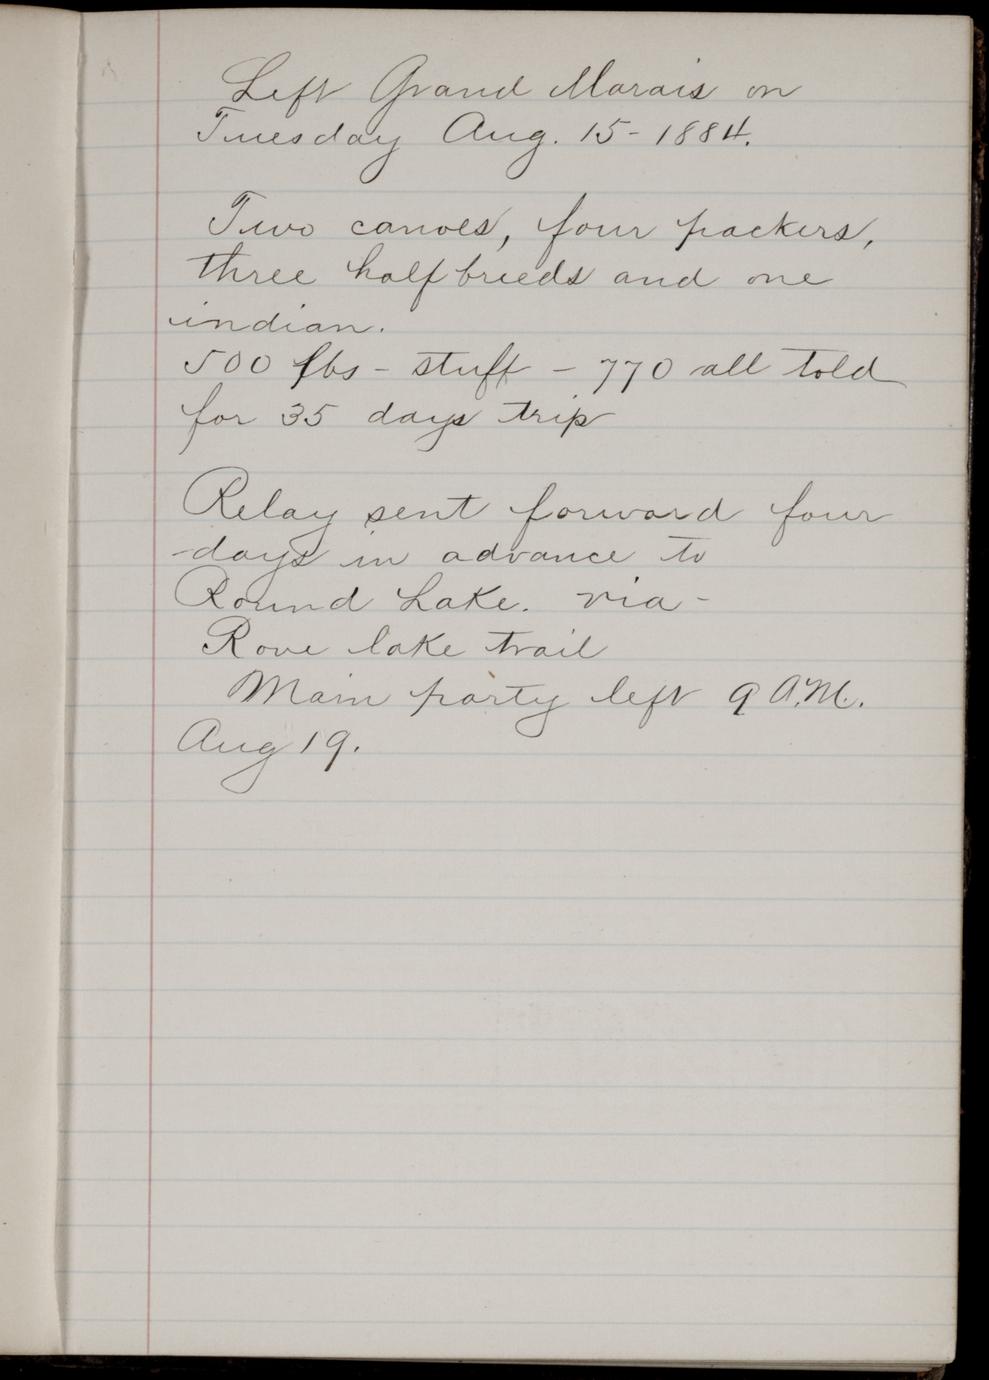 Left Grand Marais on
Tuesday Aug. 15 - 1884.
Two canoes, four packers,
three halfbreeds and one
indian.
500 lbs - stuff - 770 all told
for 35 days trip
Relay sent forward four
days in advance to
Round Lake. via -
Rove lake trail
Main party left 9 A.M.
Aug 19.